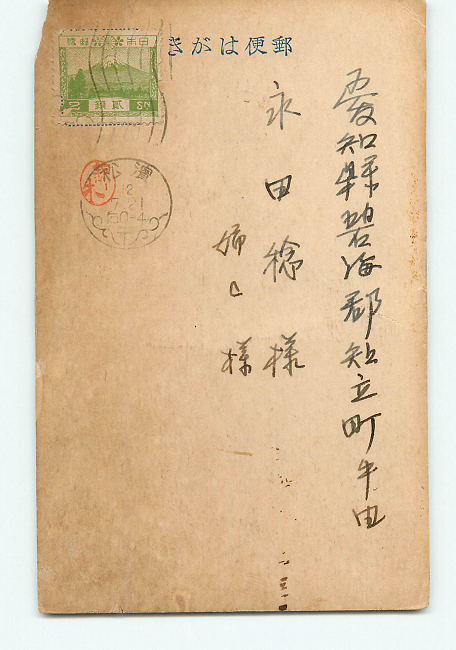 郵便はがき
愛知県碧海郡知立町牛田
永田稔様
姉上様
日本郵便
2 銭貳 SN
濱松
12
7.21
后0-4